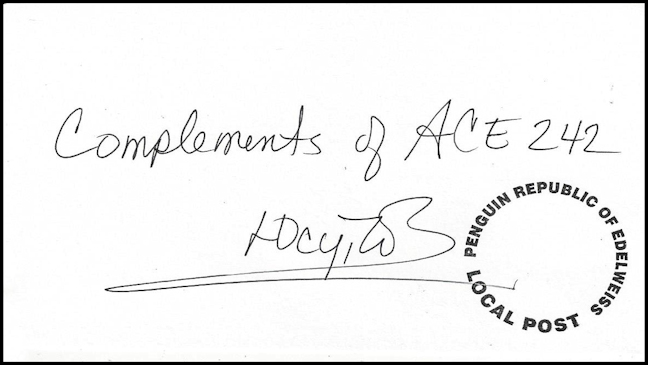 Complements of ACE 242
PENGUIN REPUBLIC OF EDELWEISS
LOCAL POST